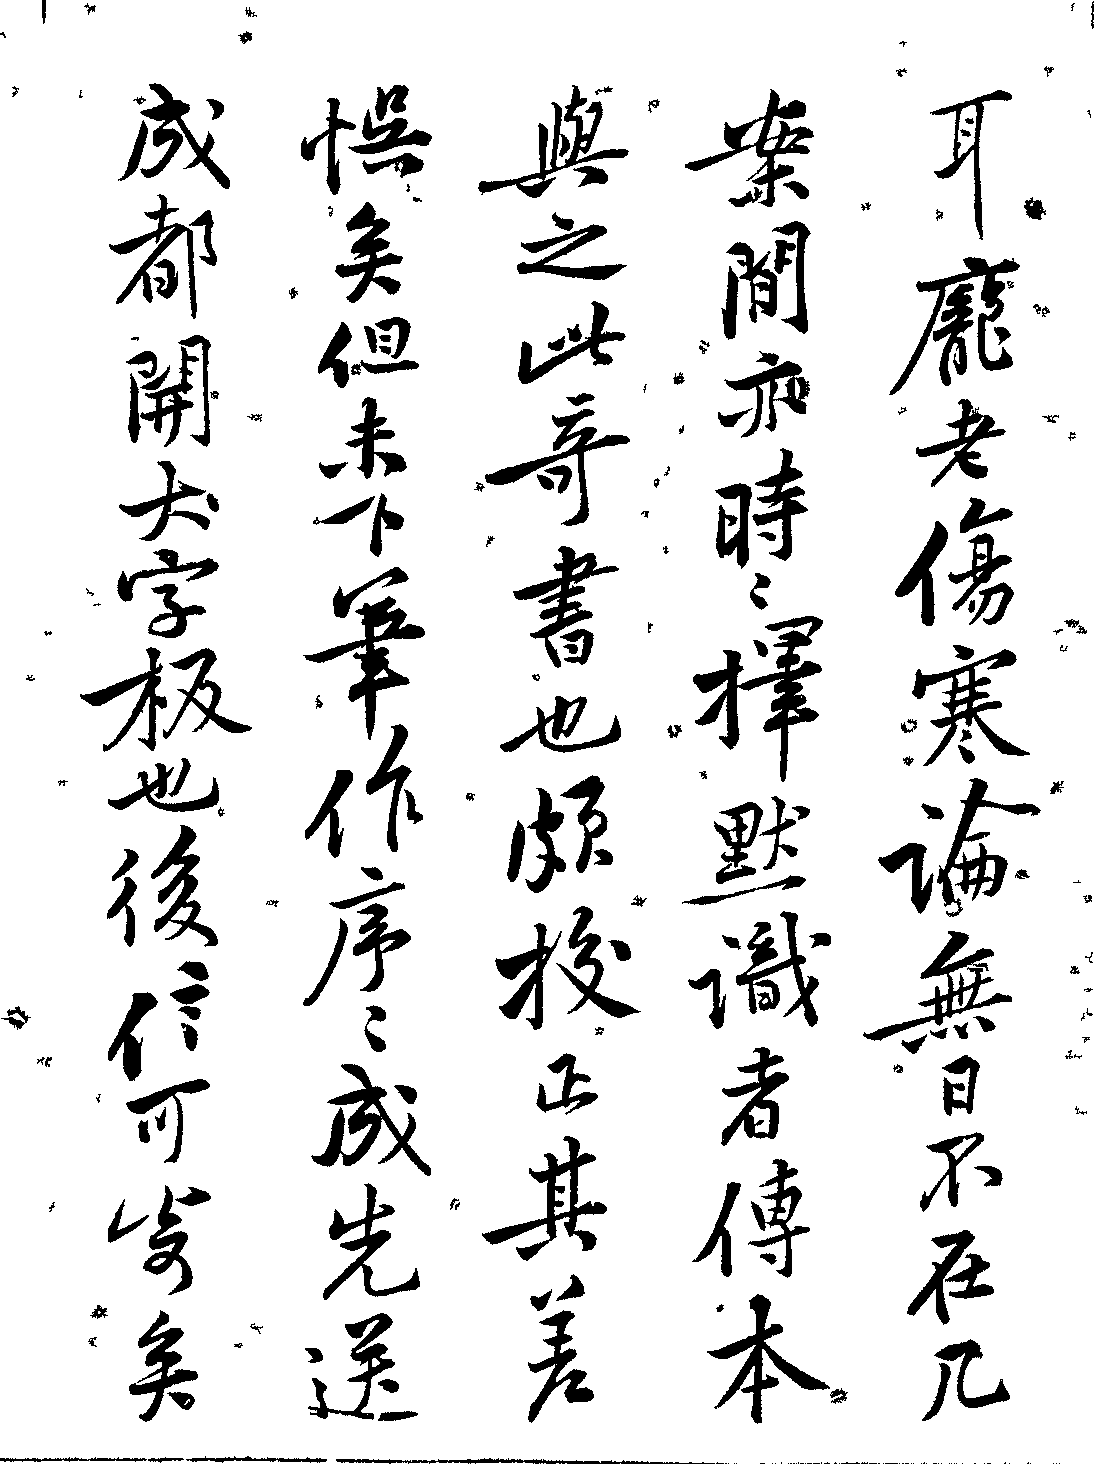 耳龐老傷寒論無日不在几
案間亦時〻擇默識者傳本
與之此奇書也頗校正其差
悮矣但未下筆作序〻成先送
成都開大字板也後信可寄矣